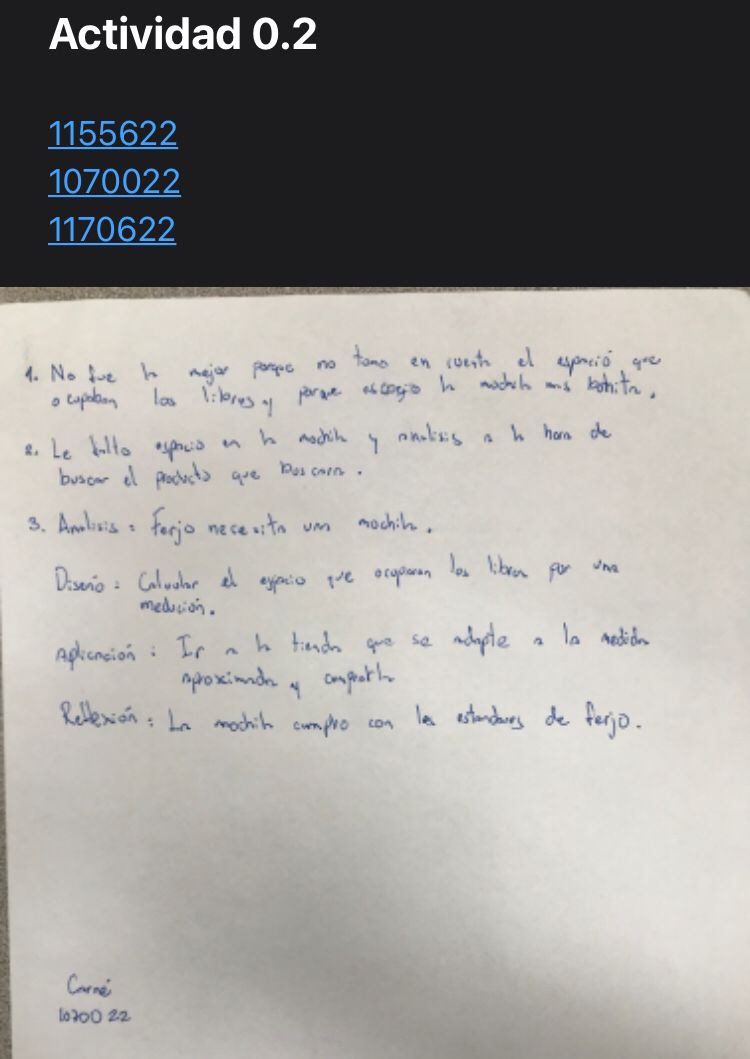 Actividad 0.2
1155622
1070022
1170622
1. No fue la mejor porque no tomo en cuenta el espació que
ocupaban los libros y porque escogio la mochila mas bonita.
2. Le fallo espacio en la mochila y analisis a la hora de
buscar el producto que buscara.
3. Analisis: Ferjo necesita una mochila.
Diseño: Calcular el espacio que ocuparan los libros por una
medición.
Aplicación: Ir a la tienda que se adapte a la medida
aproximada y comprarla
Reflexión: La mochila cumplio con los estandares de ferjo.
Carné
1070022